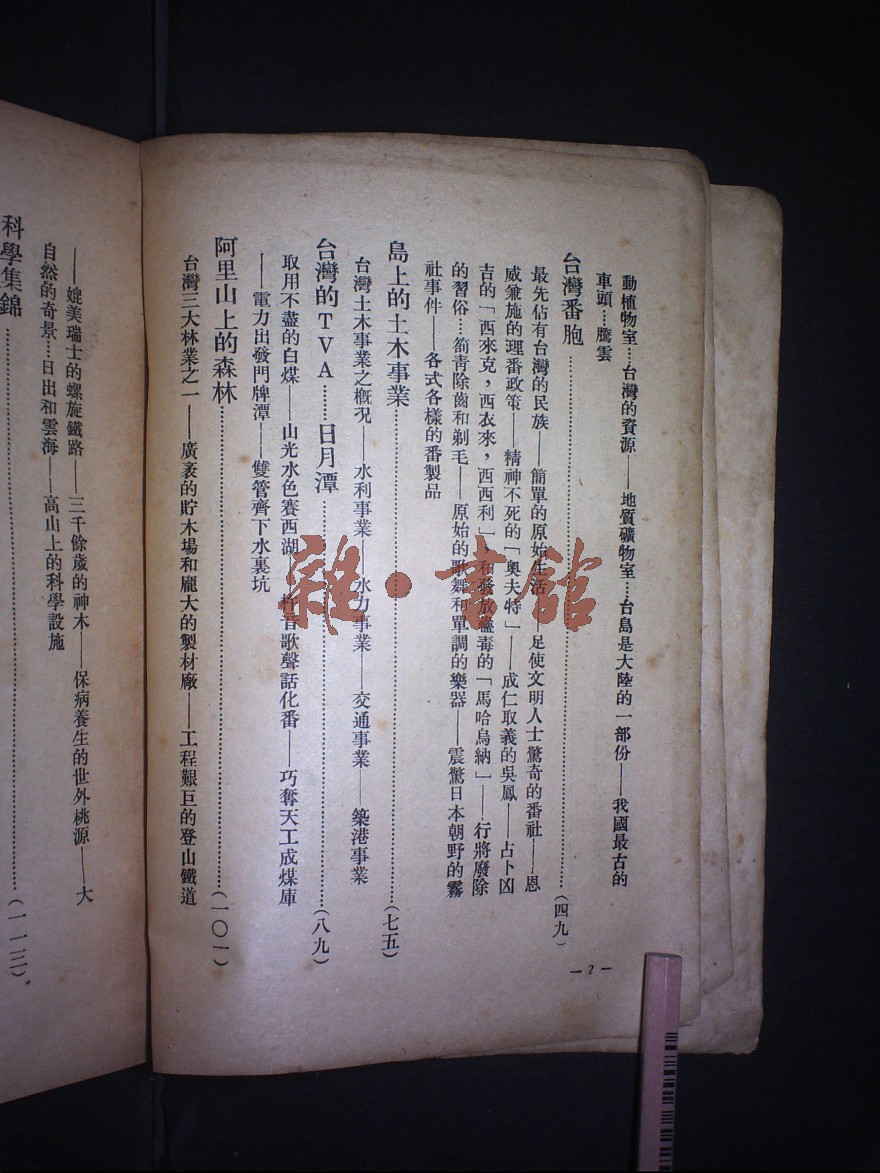 動植物室…台灣的資源——地質礦物室…台島是大陸的一部份——我國最古的
車頭…騰雲
台灣番胞……(四九)
最先佔有台灣的民族——簡單的原始生活——足使文明人士驚奇的番社——恩
威兼施的理番政策——精神不死的「奧夫特」——成仁取義的吳鳳——占卜凶
吉的「西來克，西衣來，西西利」，和發放蠱毒的「馬哈烏納」——行將廢除
的習俗…箭青除齒和剃毛——原始的歌舞和單調的樂器——震驚日本朝野的霧
社事件——各式各樣的番製品
島上的土木事業……(七五)
台灣土木事業之概況——水利事業——水力事業——交通事業——築港事業
台灣的TVA……日月潭……(八九)
取用不盡的白煤——山光水色賽西湖——杵音歌聲話化番——巧奪天工成煤庫
——電力出發門牌潭——雙管齊下水裏坑
阿里山上的森林……(一〇一)
台灣三大林業之一——廣袤的貯木場和龐大的製材廠——工程艱巨的登山鐵道
——媲美瑞士的螺旋鐵路——三千餘歲的神木——保病養生的世外桃源——大
自然的奇景…日出和雲海——高山上的科學設施
科學集錦……(一一三)
—2—
雜·書館